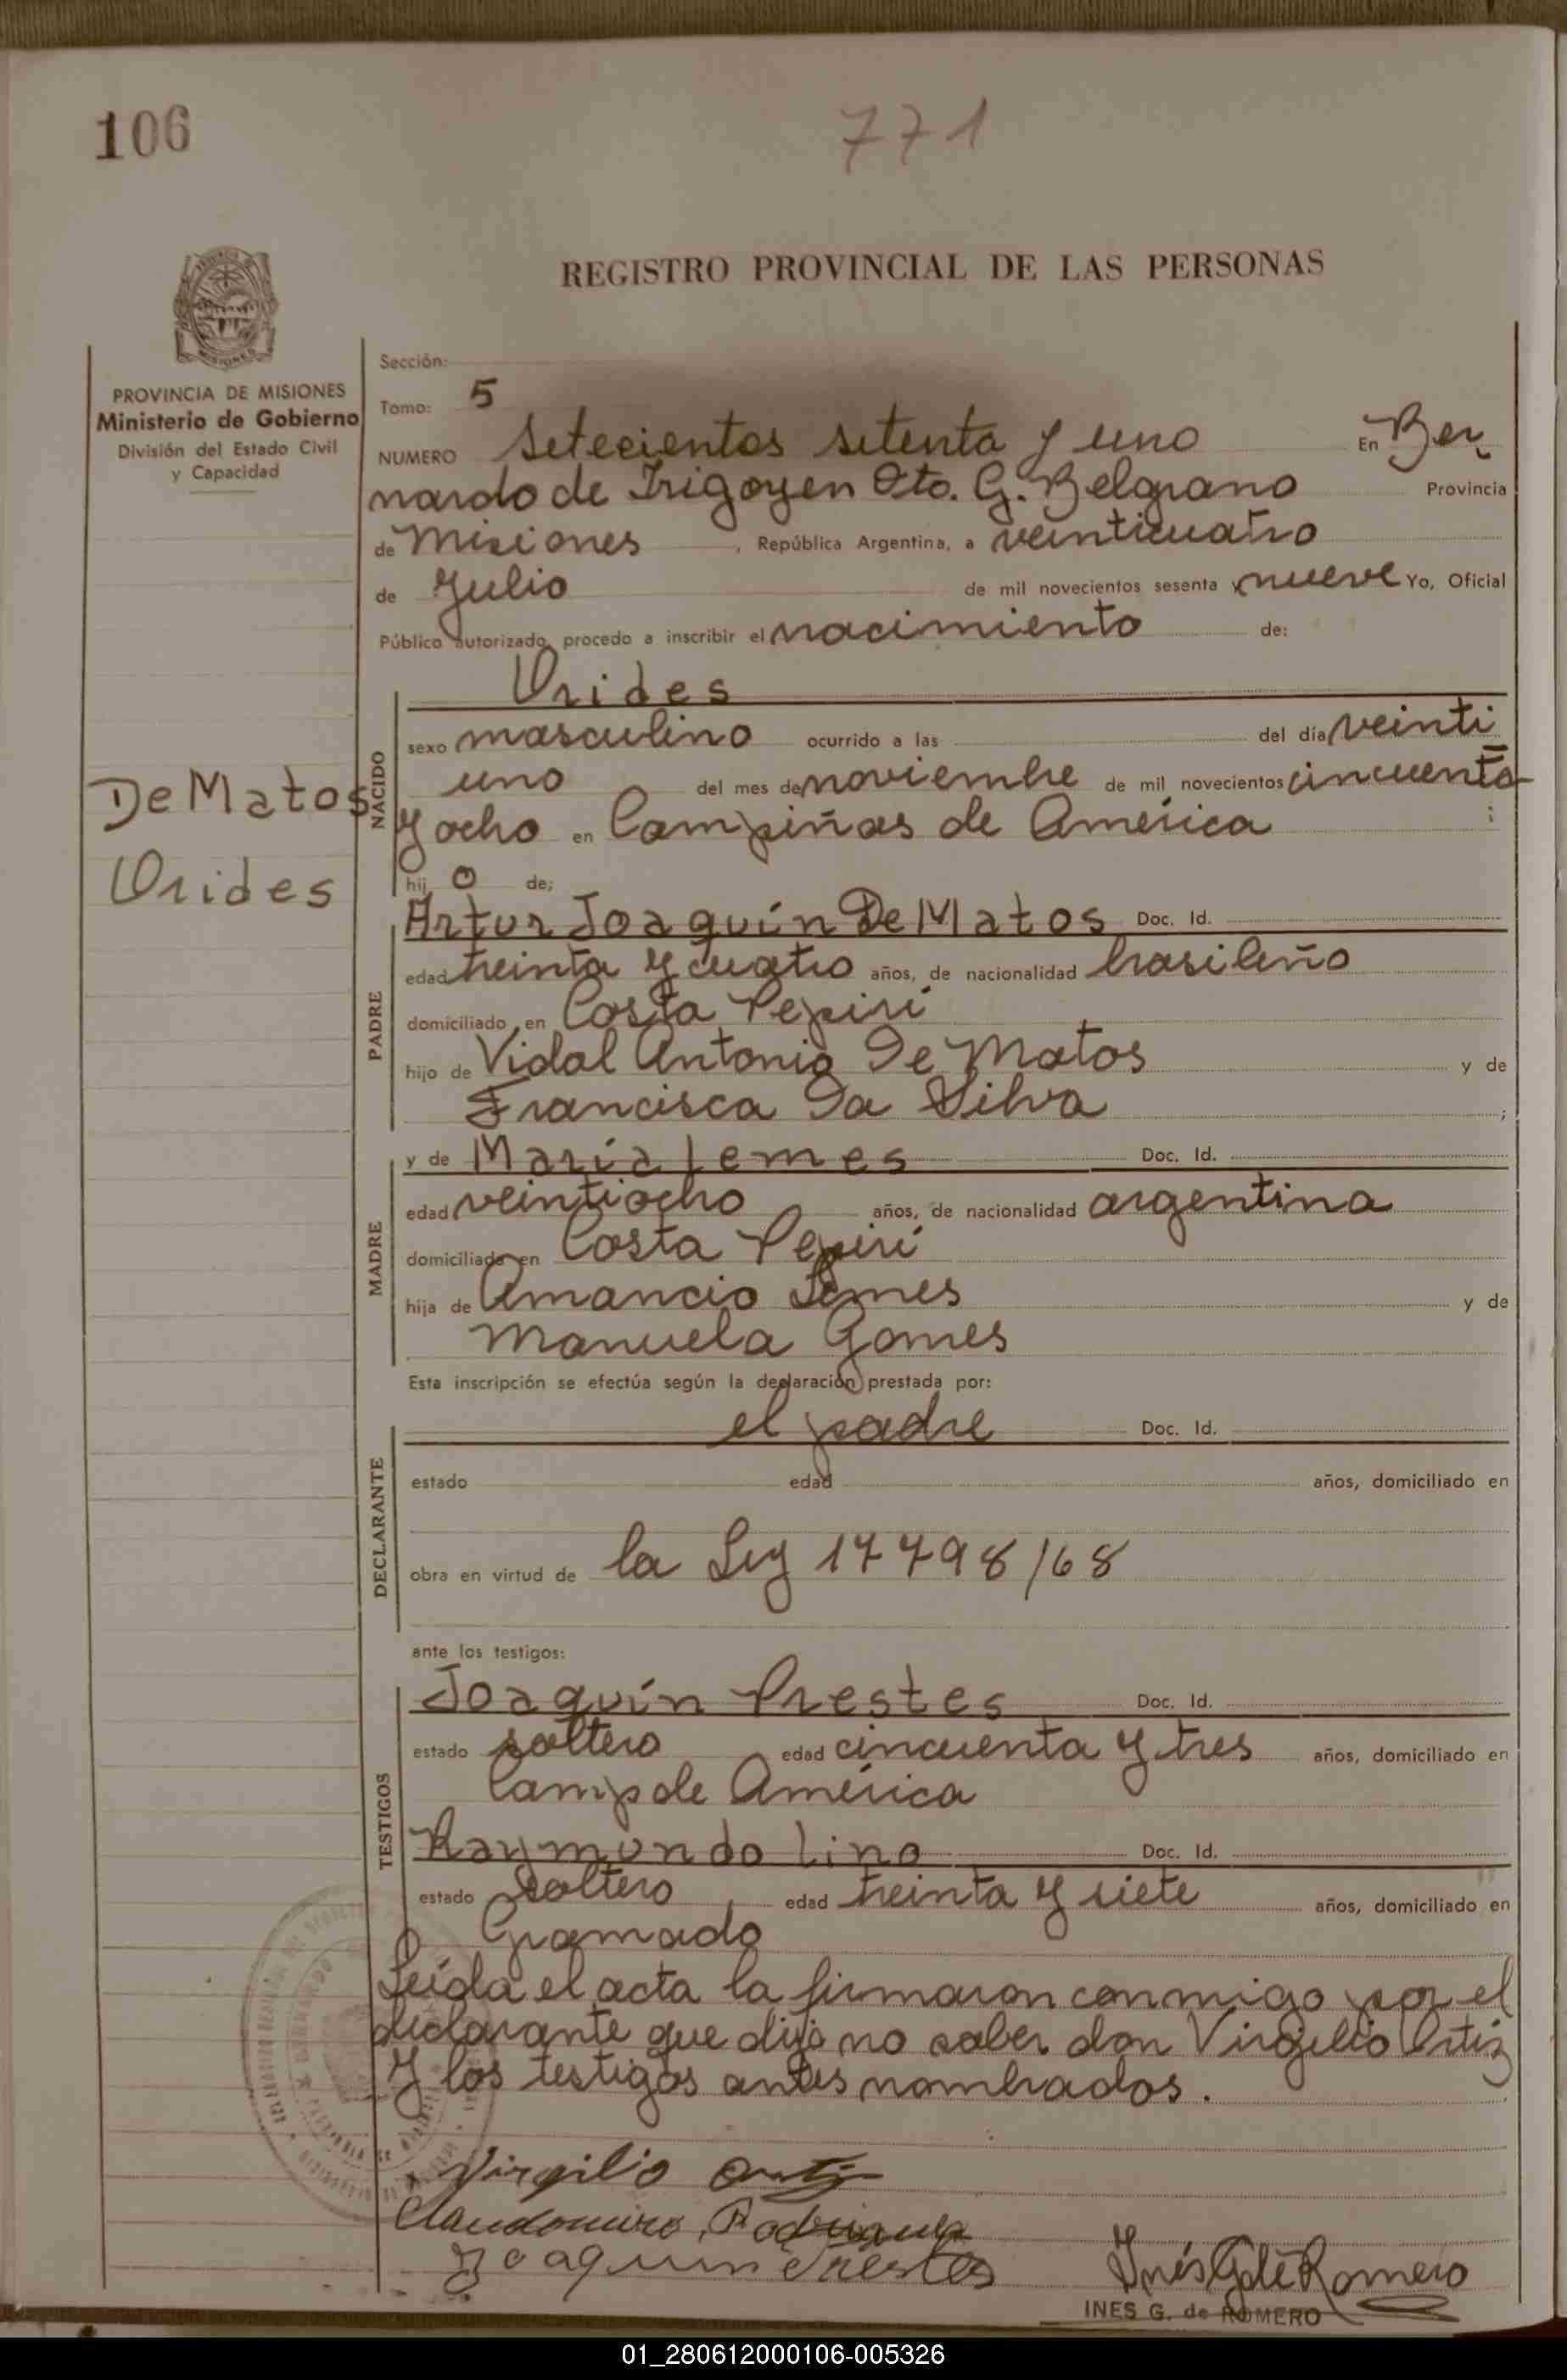 106
771
REGISTRO PROVINCIAL DE LAS PERSONAS
PROVINCIA DE MISIONES
Ministerio de Gobierno
División del Estado Civil
y Capacidad
Sección:
Tomo: 5
NUMERO Setecientos setenta y uno En Ber
nardo de Irigoyen Dto. G. Belgrano Provincia
de Misiones, República Argentina, a veinticuatro
de Julio de mil novecientos sesenta y nueve Yo, Oficial
Público autorizado, procedo a inscribir el nacimiento de:
Urides
NACIDO
sexo masculino ocurrido a las del día veinti
uno del mes de noviembre de mil novecientos cincuenta
y ocho en Campiñas de América ;
hij o de;
De Matos
Urides
PADRE
Artur Joaquín De Matos Doc. Id.
edad treinta y cuatro años, de nacionalidad brasileño
domiciliado en Costa Pepirí
hijo de Vidal Antonio De Matos y de
Francisca Da Silva ;
MADRE
y de María Lemes Doc. Id.
edad veintiocho años, de nacionalidad argentina
domiciliada en Costa Pepirí
hija de Amancio Lemes y de
Manuela Gomes
Esta inscripción se efectúa según la declaración prestada por:
DECLARANTE
el padre Doc. Id.
estado edad años, domiciliado en
obra en virtud de la Ley 17798/68
ante los testigos:
TESTIGOS
Joaquín Prestes Doc. Id.
estado soltero edad cincuenta y tres años, domiciliado en
Camp de América
Raymundo Lino Doc. Id.
estado soltero edad treinta y siete años, domiciliado en
Gramado
Leída el acta la firmaron conmigo por el
declarante que dijo no saber don Virgilio Ortiz
y los testigos antes nombrados.
Virgilio Ortiz
Claudomiro Rodrigues
Joaquin Prestes
Inés G de Romero
INES G. de ROMERO
01_280612000106-005326